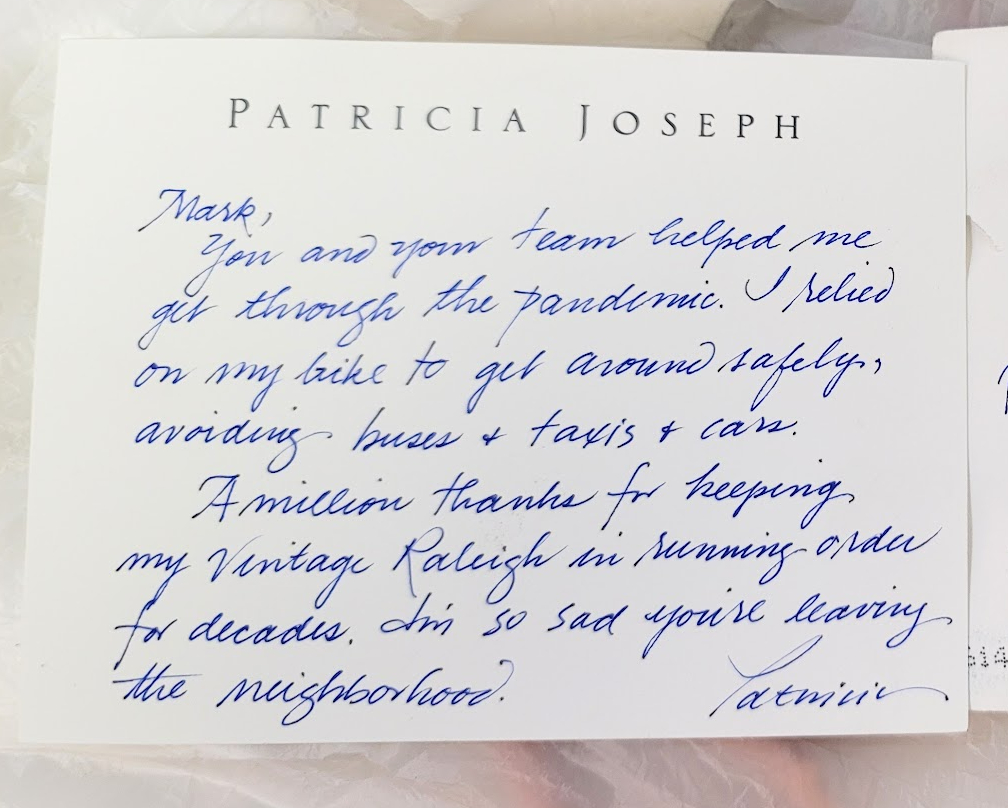 PATRICIA JOSEPH
Mark,
You and your team helped me
get through the pandemic. I relied
on my bike to get around safely,
avoiding buses & taxis & cars.
A million thanks for keeping
my Vintage Raleigh in running order
for decades. I'm so sad you're leaving
the neighborhood.
Patricia
614